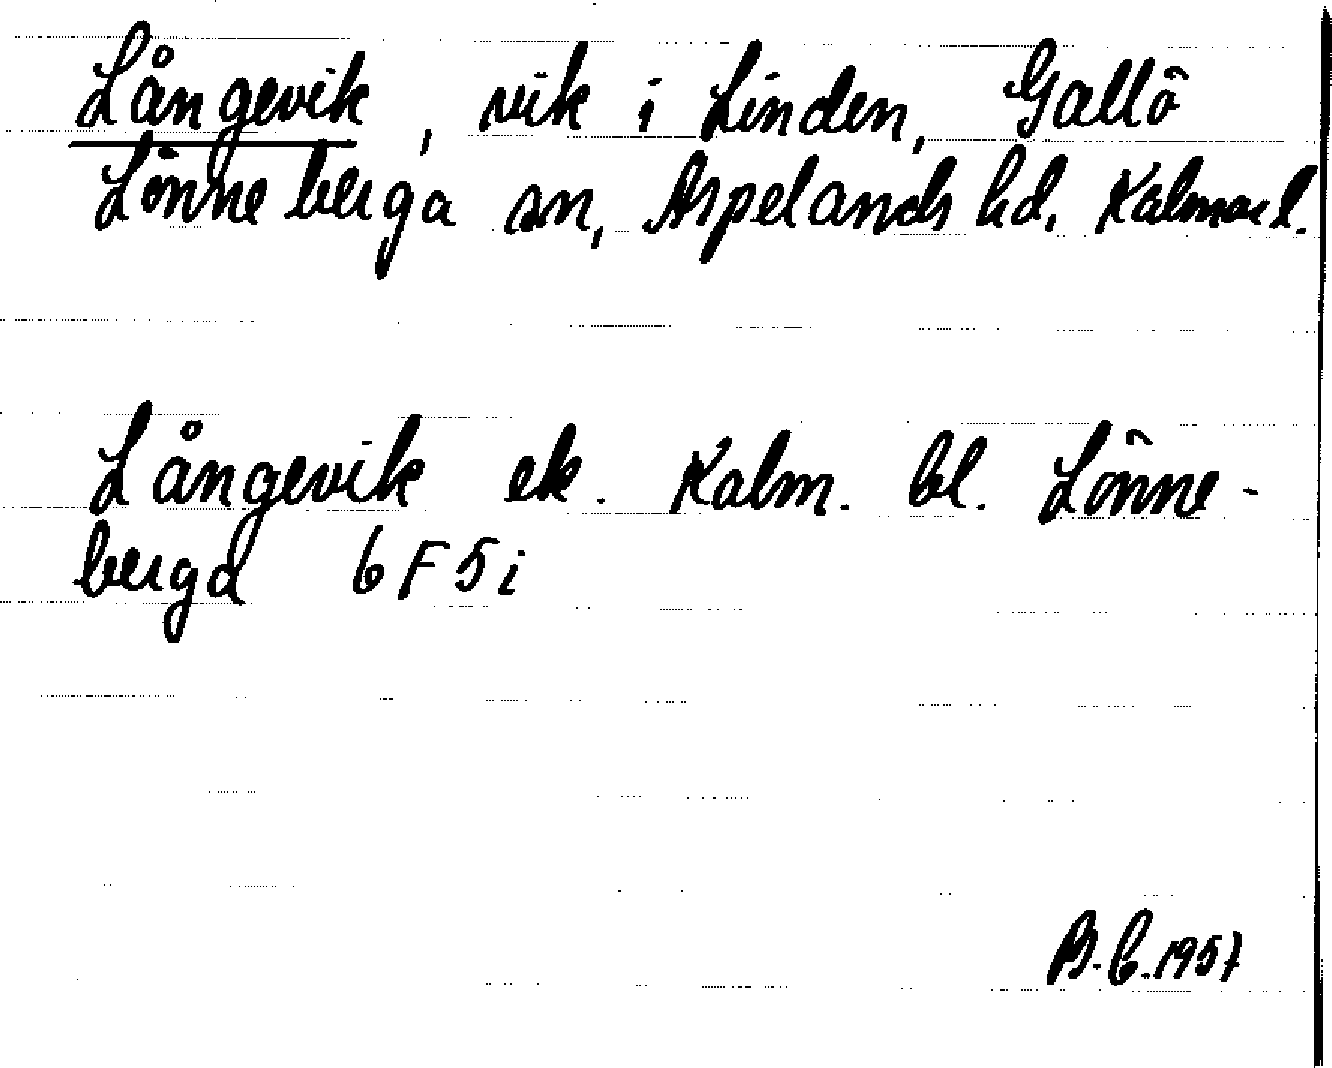 Långevik, vik i Linden, Gallö
Lönneberga sn, Aspelands hd, Kalmar l.
Långevik ek. Kalm. bl. Lönne-
berga 6F5i
B.C. 1957